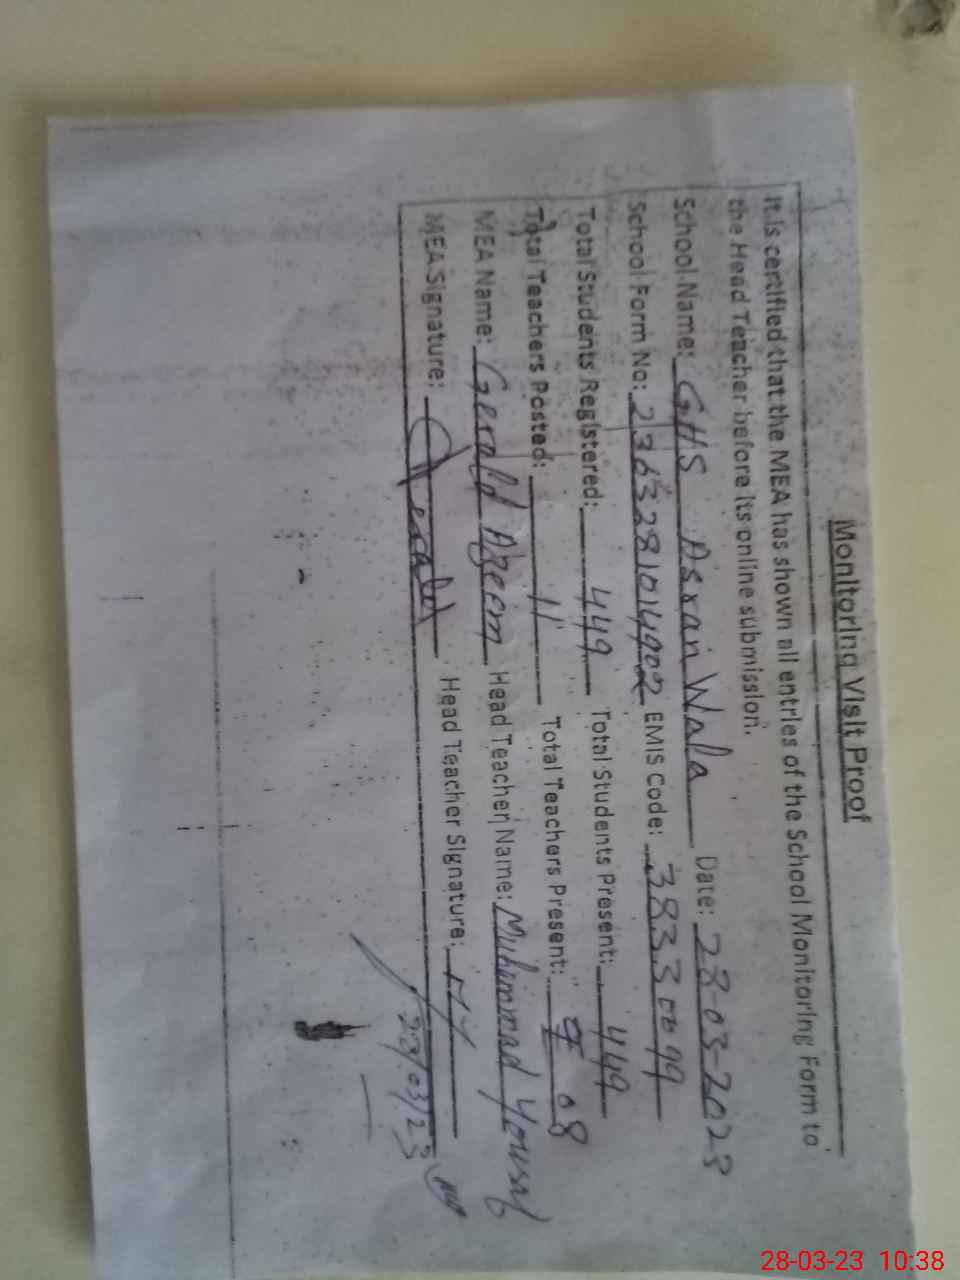 Monitoring Visit Proof
It is certified that the MEA has shown all entries of the School Monitoring Form to
the Head Teacher before its online submission.
School Name: GHS Assan Wala Date: 28-03-2023
School Form No: 2363281014902 EMIS Code: 38330099
Total Students Registered: 449 Total Students Present: 449
Total Teachers Posted: 11 Total Teachers Present: 08
MEA Name: Gerald Azeem Head Teacher Name: Muhammad Yousuf
MEA Signature: Gerald Head Teacher Signature:
28/03/23
28-03-23 10:38